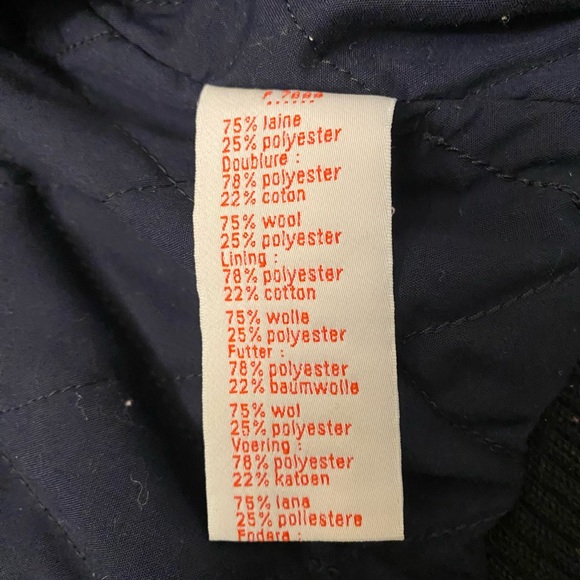 75% laine
25% polyester
Doublure :
78% polyester
22% coton
75% wool
25% polyester
Lining :
78% polyester
22% cotton
75% wolle
25% polyester
Futter :
78% polyester
22% baumwolle
75% wol
25% polyester
Voering :
78% polyester
22% katoen
75% lana
25% poliestere
Fodera :